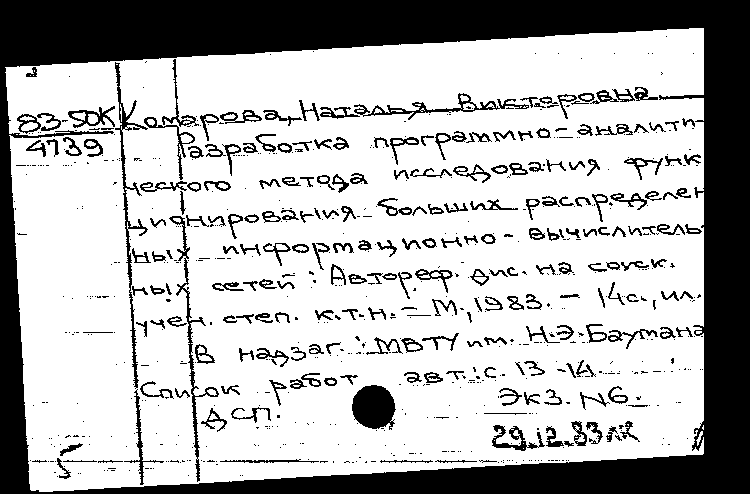 83-50К Комарова, Наталья Викторовна.
4739 Разработка программно-аналити-
ческого метода исследования функ
ционирования больших распределен
ных информационно-вычислитель-
ных сетей : Автореф. дис. на соиск.
учен. степ. к.т.н. - М., 1983. - 14с., ил.
В надзаг. : МВТУ им. Н.Э.Баумана
Список работ авт.: с. 13-14.
ДСП. Экз. №6.
29.12.83
5